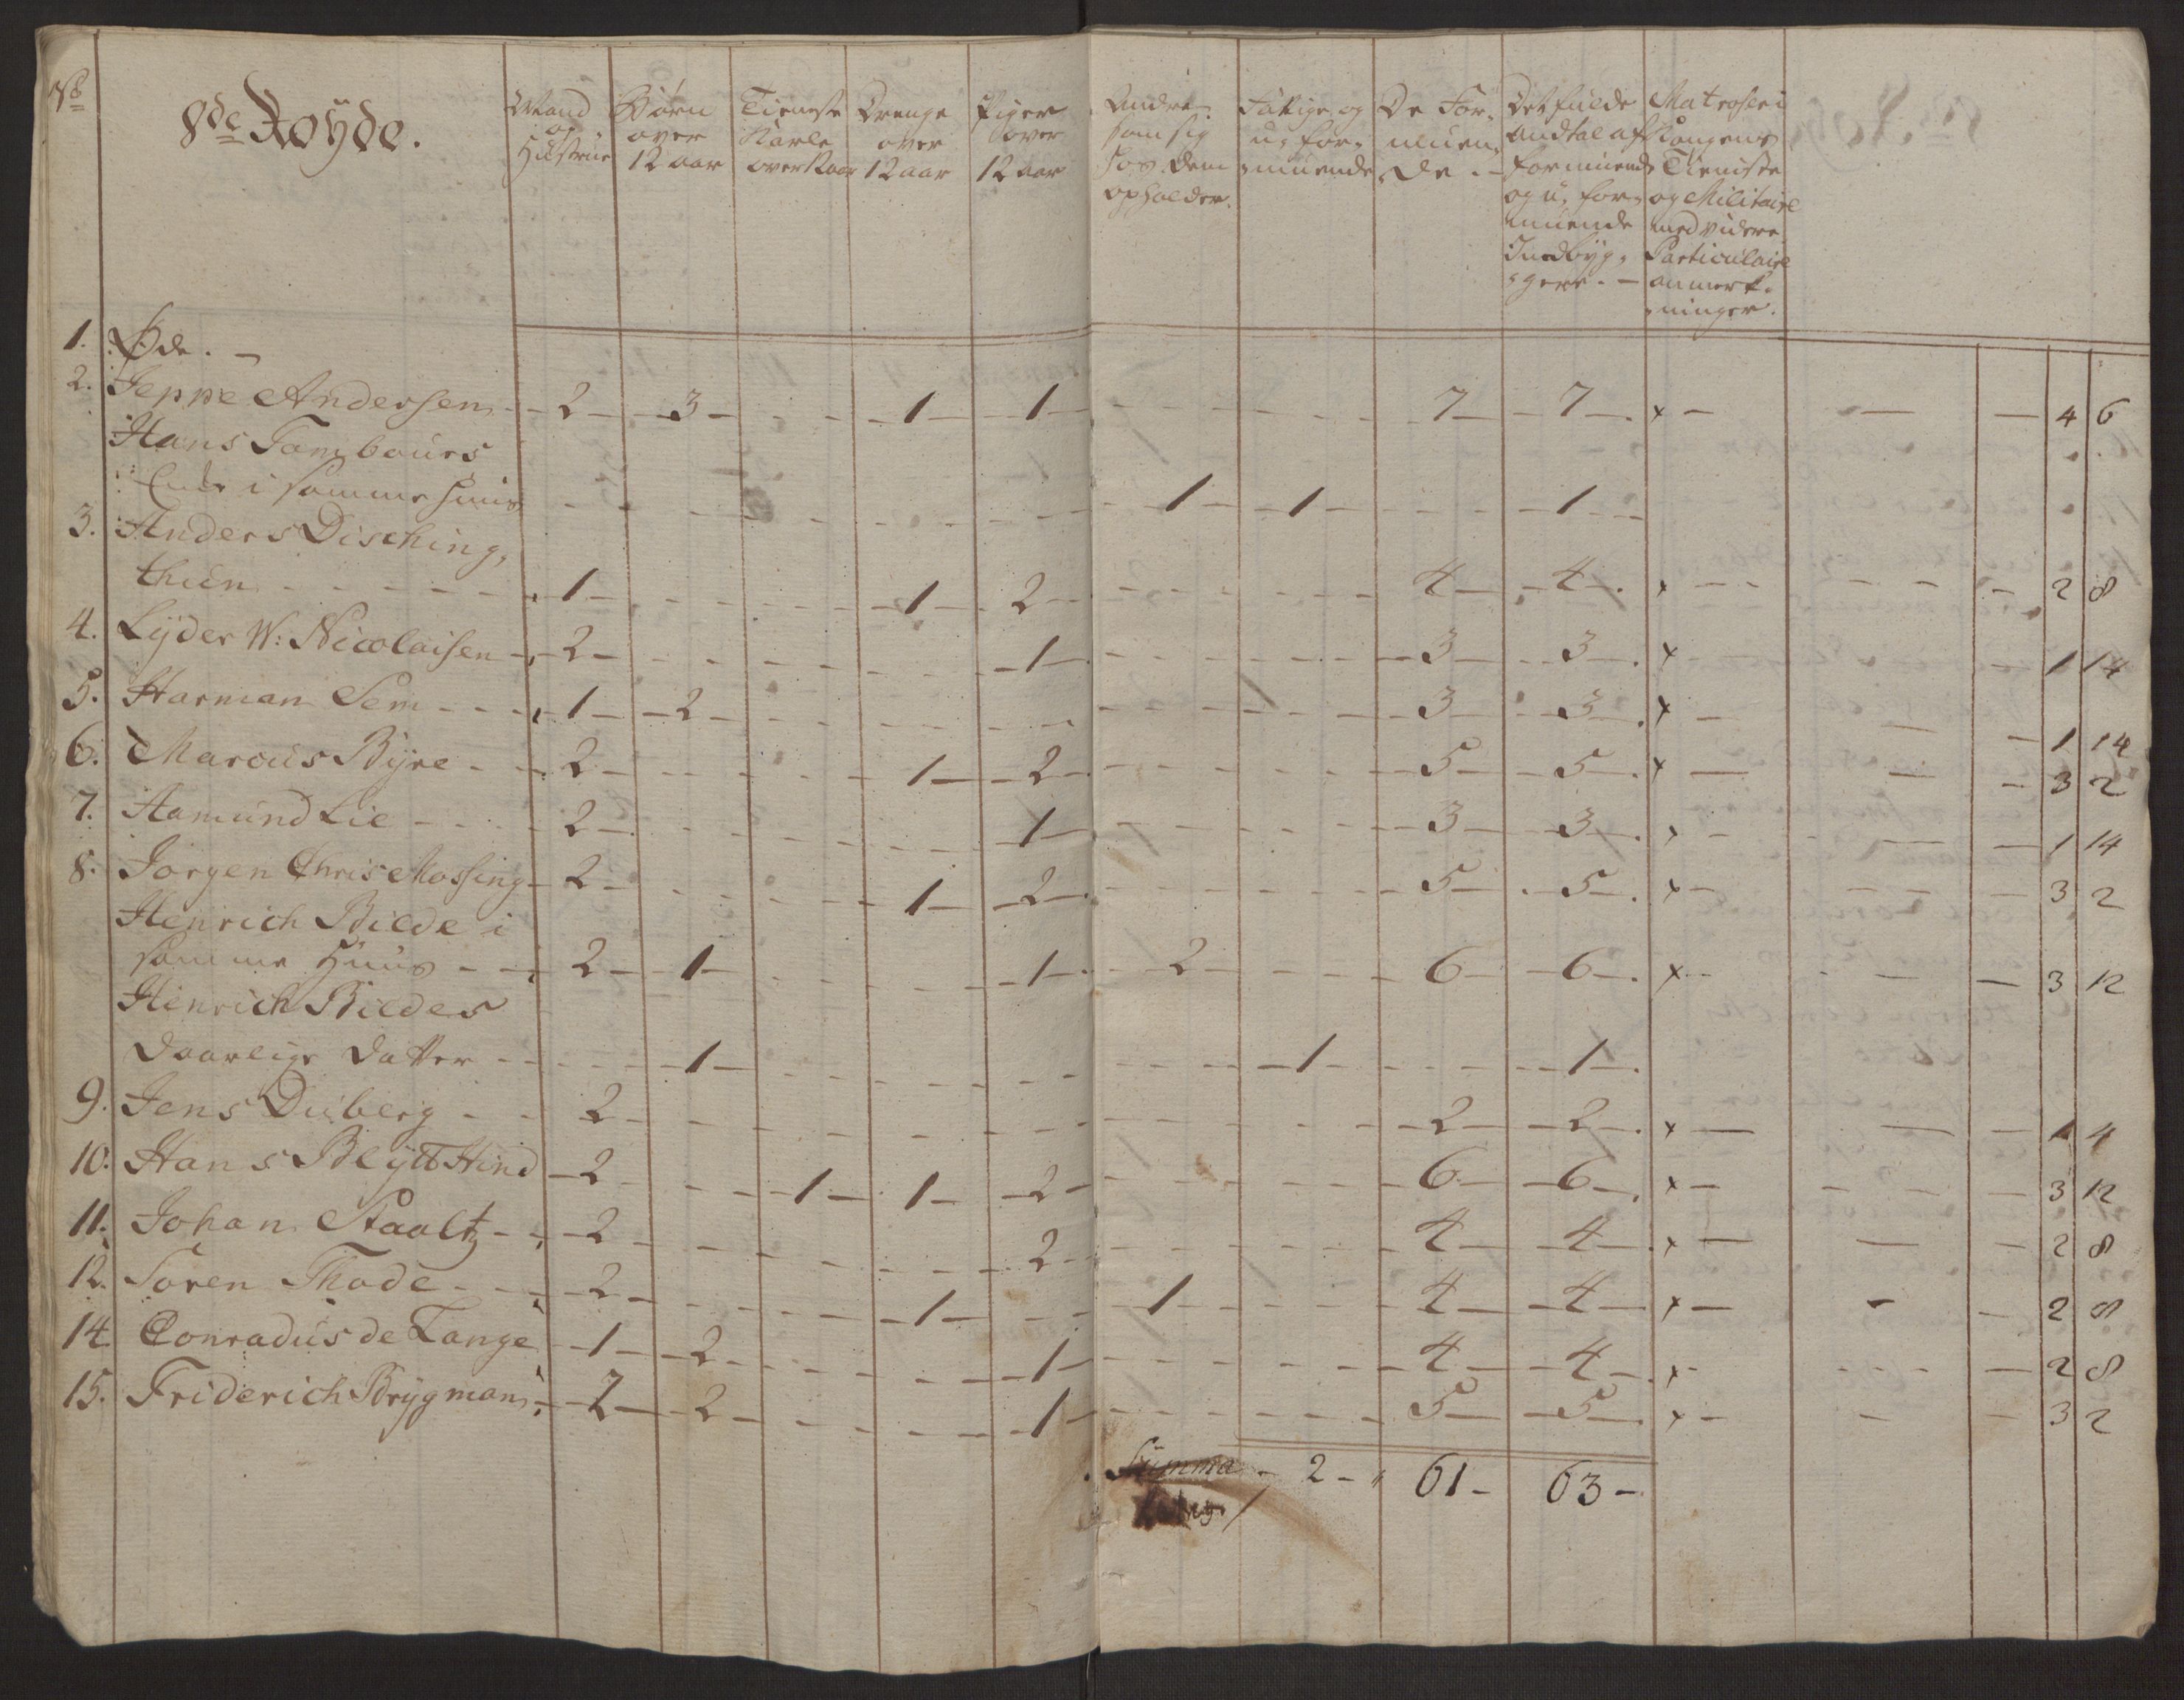 No 8de Roÿde.
Mand og Hüstrüe
Börn over 12 aar
Tieneste Karle over 12 aar
Drenge over 12 aar
Piger over 12 aar
Andre som sig hos dem opholder.
Fattige og u, for, müende
De For, müen, de. -
Det fulde Andtal af formüende og u, for, müende Indbÿg, gere. -
Matroser i Kongens Tieniste og Militaire med videre Particulaire anmerk, ninger.
1. Øde. -
2. Jeppe Andersen - 2 - 3 - - 1 - 1 - 7 - 7 - x - 4 6
Hans Tambours
Encke i samme Huus - 1 - 1 - - 1 -
3. Anders Disching,
thün - 1 - - 1 - 2 - 4 - 4 - x - 2 8
4. Lÿder W: Nicolaisen - 2 - - 1 - 3 - 3 - x - 1 14
5. Harman Sem - 1 - 2 - - 3 - 3 - x - 1 14
6. Marcus Bÿre - 2 - - 1 - 2 - 5 - 5 - x - 3 2
7. Aamund Lie - 2 - - 1 - 3 - 3 - x - 1 14
8. Jörgen Chris Mossing - 2 - - 1 - 2 - 5 - 5 - x - 3 2
Henrich Bilde i
samme Huus - 2 - 1 - - 1 - 2 - 6 - 6 - x - 3 12
Henrich Bildes
daarlige datter - 1 - - 1 - - 1 -
9. Jens Duberg - 2 - - 2 - 2 - x - 1 4
10. Hans Blÿtt Hind - 2 - - 1 - 1 - 2 - 6 - 6 - x - 3 12
11. Johan Staaltz - 2 - - 2 - 4 - 4 - x - 2 8
12. Sören Thode - 2 - - 1 - - 1 - 4 - 4 - x - 2 8
14. Conradus de Lange - 1 - 2 - - 1 - 4 - 4 - x - 2 8
15. Friderich Brÿgman - 2 - 2 - - 1 - 5 - 5 - x - 3 2
Summa - 2 - 61 - 63 -